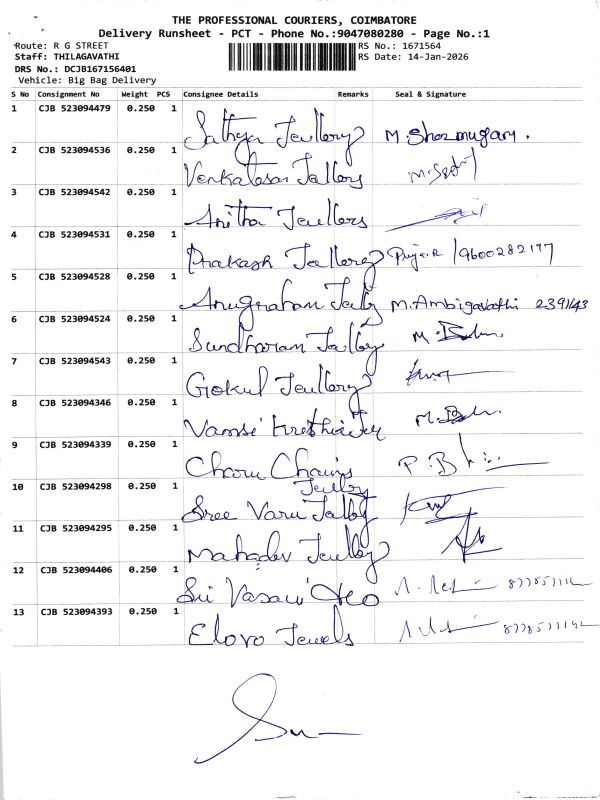 THE PROFESSIONAL COURIERS, COIMBATORE
Delivery Runsheet - PCT - Phone No.:9047080280 - Page No.:1
Route: R G STREET RS No.: 1671564
Staff: THILAGAVATHI RS Date: 14-Jan-2026
DRS No.: DCJB167156401
Vehicle: Big Bag Delivery
S No Consignment No Weight PCS Consignee Details Remarks Seal & Signature
1 CJB 523094479 0.250 1 Sathya Jeullery M. Shanmugam.
2 CJB 523094536 0.250 1 Venkatasan Jallery
3 CJB 523094542 0.250 1 Anitha Jeullers
4 CJB 523094531 0.250 1 Prakash Jeallerey Puja.R /9600282177
5 CJB 523094528 0.250 1 Anugraham M. Ambigavathi 2391143
6 CJB 523094524 0.250 1 Sundharam Jalley
7 CJB 523094543 0.250 1 Gokul Jeullery
8 CJB 523094346 0.250 1 Vamsi
9 CJB 523094339 0.250 1 Charu Chains
10 CJB 523094298 0.250 1 Sree Varu
11 CJB 523094295 0.250 1 Mahadev Jeulley
12 CJB 523094406 0.250 1 Sri Vasavi
13 CJB 523094393 0.250 1 Elovo Jewels